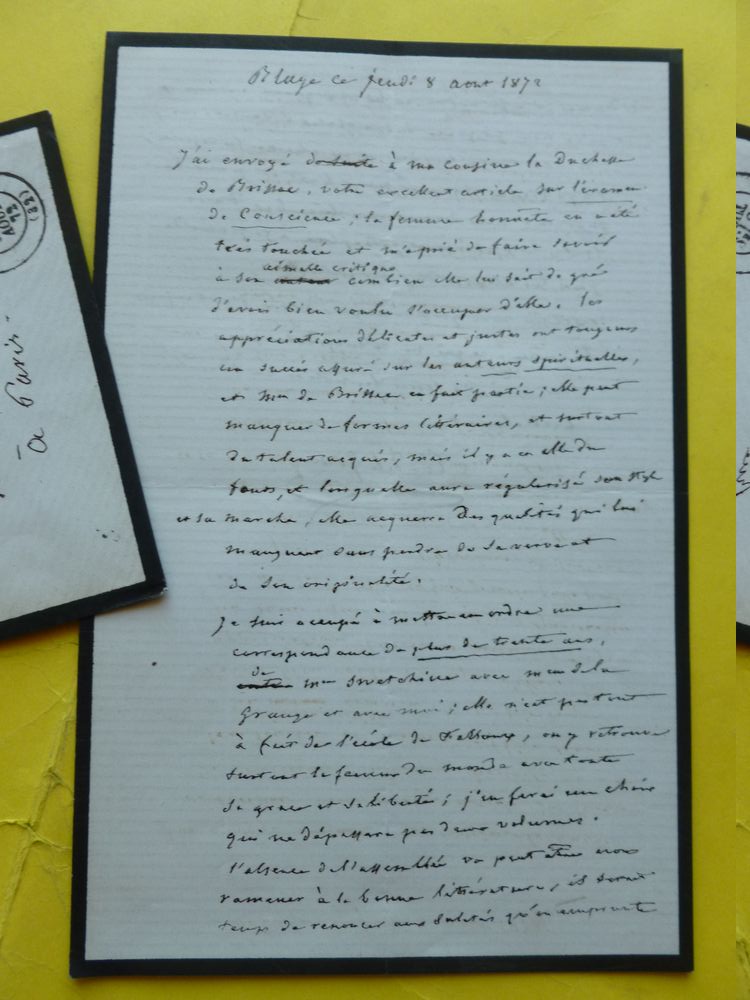 Blaye ce jeudi 8 aout 1872
J'ai envoyé de suite à ma cousine la Duchesse
de Brissac, votre excellent article sur l'examen
de Conscience ; la femme honnête en a été
très touchée et m'a prié de faire savoir
aimable critique
à son auteur combien elle lui sait de gré
d'avoir bien voulu s'occuper d'elle. les
appréciations délicates et justes ont toujours
un succès assuré sur les auteurs spirituelles,
et Mme de Brissac en fait partie ; elle peut
manquer de formes littéraires, et surtout
du talent acquis, mais il y a en elle du
fonds, et lorsqu'elle aura régularisé son style
et sa marche, elle acquerra des qualités qui lui
manquent sans perdre de sa verve et
de son originalité.
Je suis occupé à mettre en ordre une
correspondance de plus de trente ans,
de
entre mme Swetchine avec mme de la
Grange et avec moi ; elle n'est pas tout
à fait de l'école de Falloux, on y retrouve
surtout la femme du monde avec toute
sa grace et sa liberté ; j'en ferai un choix
qui ne dépassera pas deux volumes.
l'absence de l'assemblée va peut être nous
ramener à la bonne littérature, il serait
temps de renoncer aux saletés qu'on emprunte
à Paris
AOUT
72
(22)